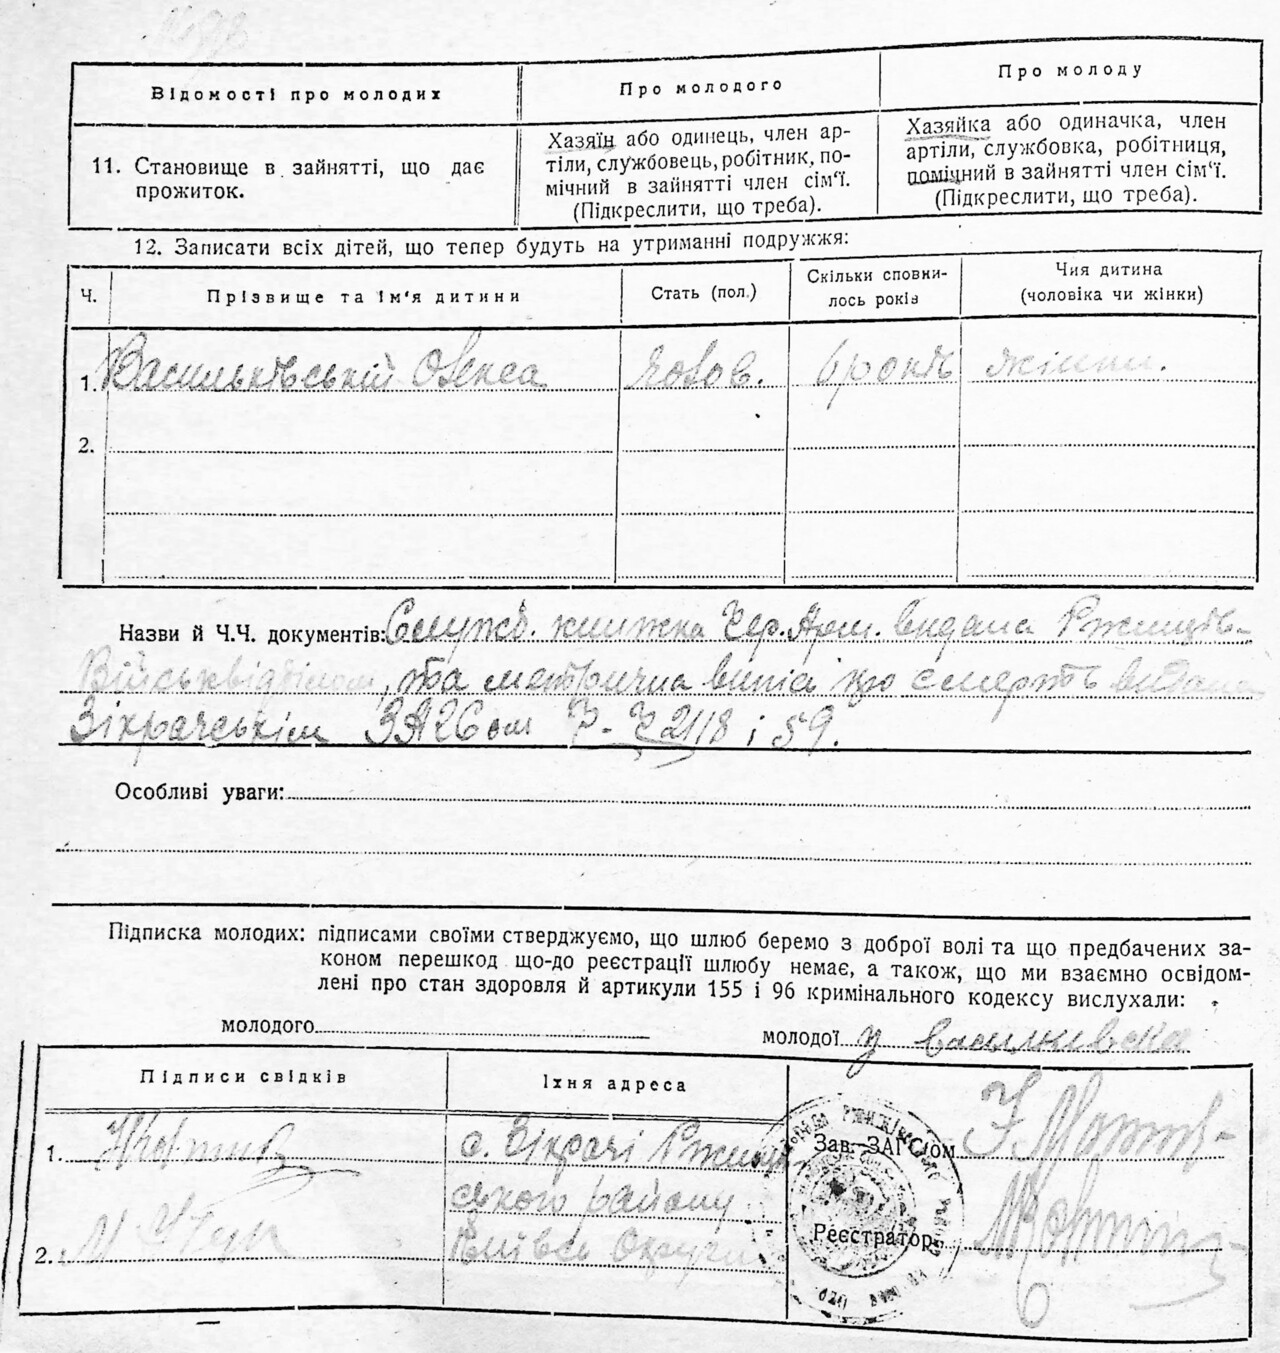 Відомості про молодих
Про молодого
Про молоду
11. Становище в зайнятті, що дає
прожиток.
Хазяїн або одинець, член ар-
тіли, службовець, робітник, по-
мічний в зайнятті член сім'ї.
(Підкреслити, що треба).
Хазяйка або одиначка, член
артіли, службовка, робітниця,
помічний в зайнятті член сім'ї.
(Підкреслити, що треба).
12. Записати всіх дітей, що тепер будуть на утриманні подружжя:
Ч.
Прізвище та ім'я дитини
Стать (пол.)
Скільки сповни-
лось років
Чия дитина
(чоловіка чи жінки)
1. Васильківській Олекса
чолов.
6 років
жінки.
2.
Назви й Ч.Ч. документів: Служб. книжка Чер. Арм. видана Ржищів-
Військвідділом, та метрична випis про смерть видана
Зікрачськім ЗАГСом Ч-Ч 2118 і 59.
Особливі уваги:
Підписка молодих: підписами своїми стверджуємо, що шлюб беремо з доброї волі та що предбачених за-
коном перешкод що-до реєстрації шлюбу немає, а також, що ми взаємно освідом-
лені про стан здоровля й артикули 155 і 96 кримінального кодексу вислухали:
молодого
молодої У Василкивска
Підписи свідків
Їхня адреса
1.
с. Зікрачі Ржищ
ського району
2.
Київсь Округи
Зав. ЗАГС'ом
Реєстратор